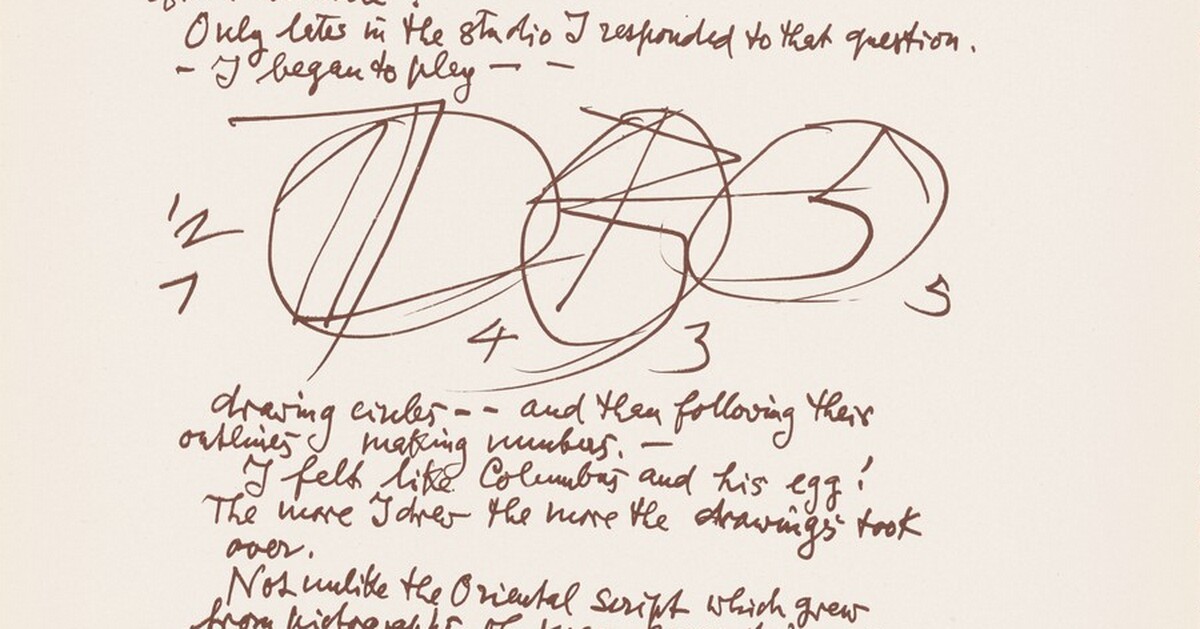 Only later in the studio I responded to that question.
- I began to play - -
1 2
7
4
3
5
drawing circles - - and then following their
outlines making numbers. -
I felt like Columbus and his egg!
The more I drew the more the drawings took
over.
Not unlike the Oriental script which grew
from pictographs of